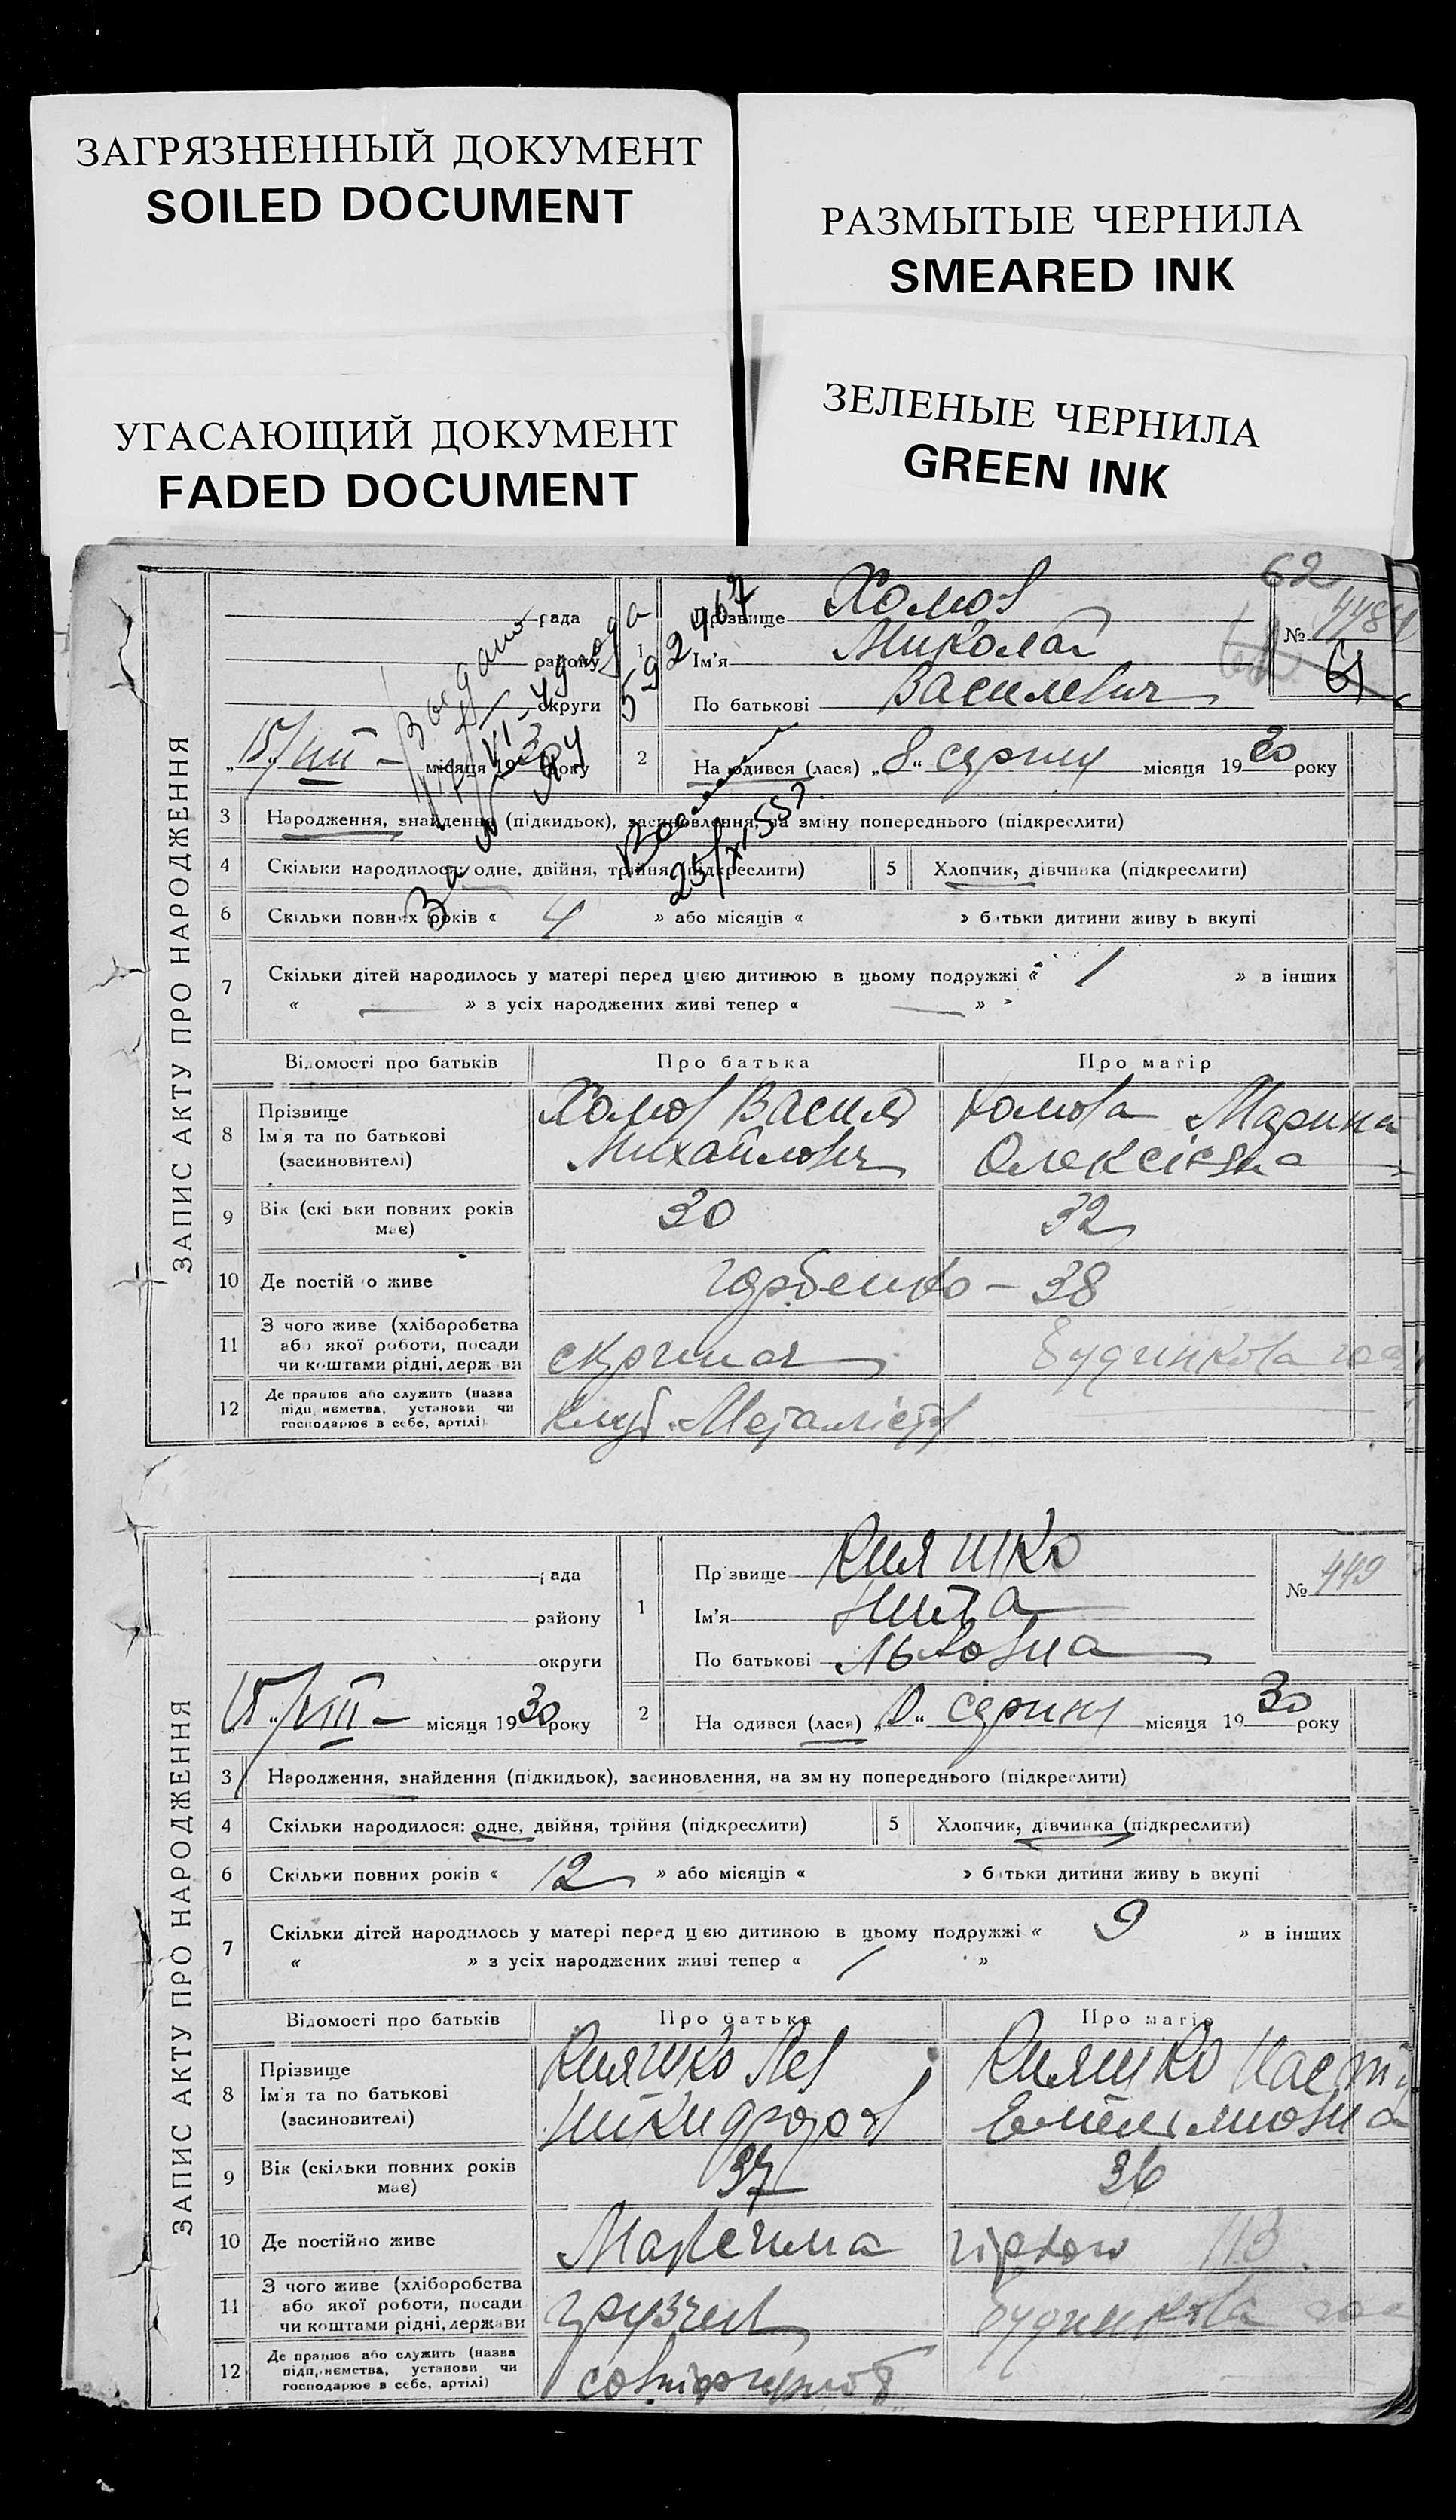 ЗАГРЯЗНЕННЫЙ ДОКУМЕНТ
SOILED DOCUMENT
РАЗМЫТЫЕ ЧЕРНИЛА
SMEARED INK
УГАСАЮЩИЙ ДОКУМЕНТ
FADED DOCUMENT
ЗЕЛЕНЫЕ ЧЕРНИЛА
GREEN INK
62
ЗАПИС АКТУ ПРО НАРОДЖЕННЯ
рада
району
округи
15/VIII – місяця 19 року
1
Прізвище Холов
Ім'я Миколай
По батькові Василевич
№ 448
61
2
На одився (лася) „8“ серпня місяця 19 30 року
3 Народження, знайдення (підкидьок), засиновлення, на зміну попереднього (підкреслити)
4 Скільки народилося: одне, двійня, трійня (підкреслити) 5 Хлопчик, дівчинка (підкреслити)
6 Скільки повних років « 4 » або місяців « » батьки дитини живу ь вкупі
7 Скільки дітей народилось у матері перед цією дитиною в цьому подружжі « 1 » в інших
« — » з усіх народжених живі тепер « — »
Відомості про батьків Про батька Про матір
8 Прізвище
Ім'я та по батькові
(засиновителі)
Холов Василь
Михайлович
Холова Марина
Олексієвна
9 Вік (скі ьки повних років має) 30 32
10 Де постій о живе Горбенко – 38
11 З чого живе (хліборобства
або якої роботи, посади
чи коштами рідні, держави
скрипач
будинкова гос
12 Де працює або служить (назва
підприємства, установи чи
господарює в себе, артілі)
клуб Металістів
ЗАПИС АКТУ ПРО НАРОДЖЕННЯ
рада
району
округи
15/VIII – місяця 19 30 року
1
Пр звище Кияшко
Ім'я Нина
По батькові Львовна
№ 449
2
На одився (лася) серпня місяця 19 30 року
3 Народження, знайдення (підкидьок), засиновлення, на зм ну попереднього (підкреслити)
4 Скільки народилося: одне, двійня, трійня (підкреслити) 5 Хлопчик, дівчинка (підкреслити)
6 Скільки повних років « 12 » або місяців « » батьки дитини живу ь вкупі
7 Скільки дітей народилось у матері перед цією дитиною в цьому подружжі « 9 » в інших
« » з усіх народжених живі тепер « »
Відомості про батьків Про батька Про матір
8 Прізвище
Ім'я та по батькові
(засиновителі)
Кияшко Лев
Кияшко Наст
Емельяновна
9 Вік (скільки повних років має) 37 36
10 Де постійно живе Максима 113
11 З чого живе (хліборобства
або якої роботи, посади
чи коштами рідні, держави
грузчик
будинкова гос
12 Де працює або служить (назва
підприємства, установи чи
господарює в себе, артілі)